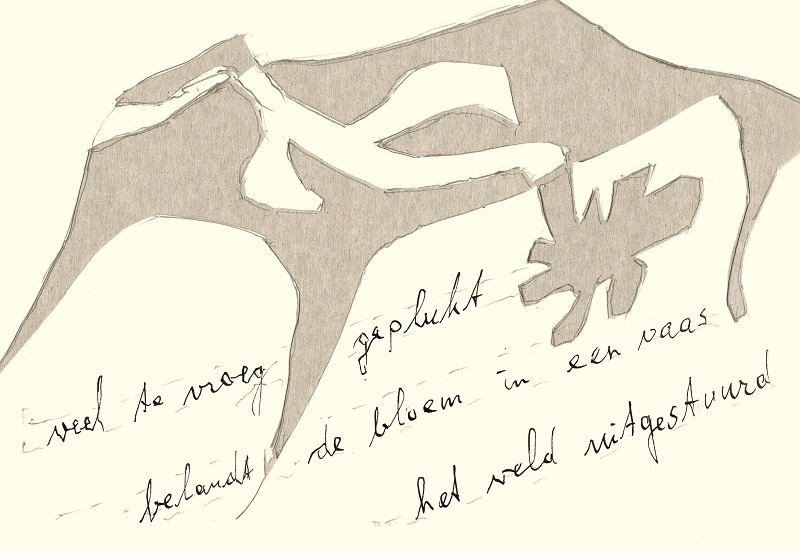 veel te vroeg geplukt
belandt de bloem in een vaas
het veld uitgestuurd